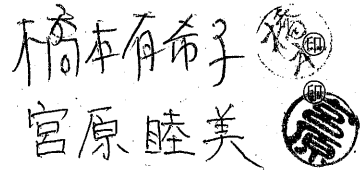 橋本有希子 ㊞
宮原睦美 ㊞